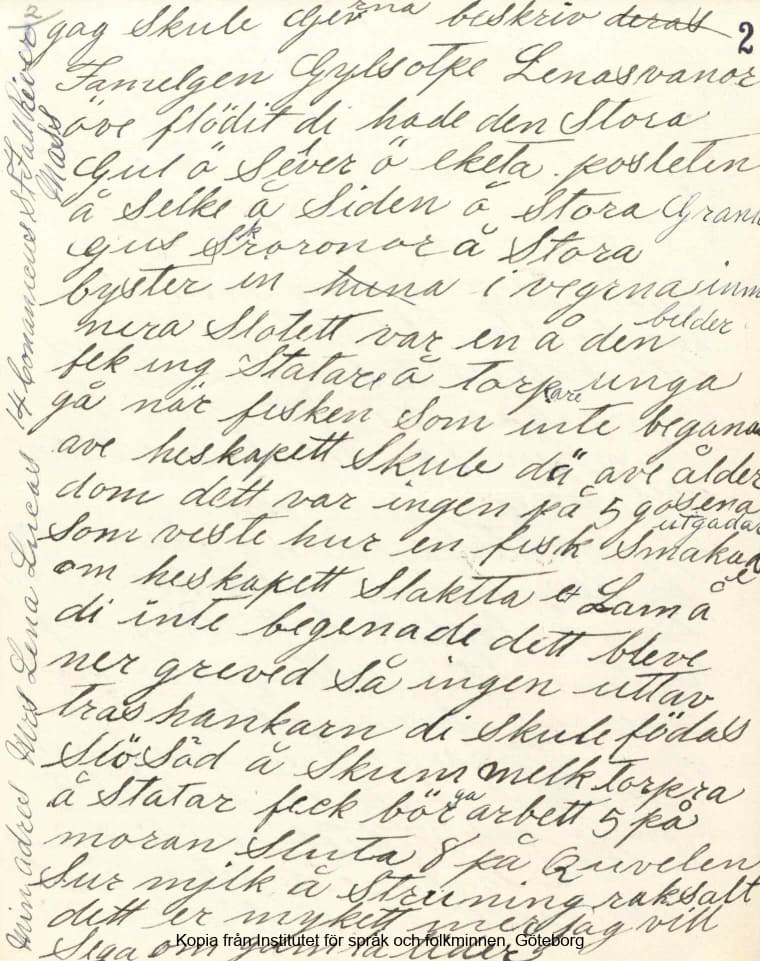 2
gag skule gerna beskriv deras
Famelgen Gylsotpe Lenas vanor
öve flödit di hade den Stora
Gul ö Sêver ö eketa poslelin
å Selke å Siden ö Stora
gus Skroronor å Stora
byster in huna i vegrna inm
nera Slotett var en å den bilder
fek ing Statare å torpare unga
gå när fisken som inte begana
ave heskapett Skule dä ave ålder
dom dett var ingen på 5 gosena
utgadar
som veste hur en fisk Smakade
om heskapett Slaktta et Lam å
di inte begenade dett bleve
ner greved så ingen uttav
trashankarn di Skule födas
Slö Säd å Skum melk torpra
å Statar feck börga arbett 5 på
moran Sluta 8 på Quvelen
Sur mjlk å Struning raksalt
dett er mykett mer jag vill
Sega om gamla tider
min adres Mrs Lena Lucas 14 Conanicus St Fall River
Mass
Kopia från Institutet för språk och folkminnen, Göteborg